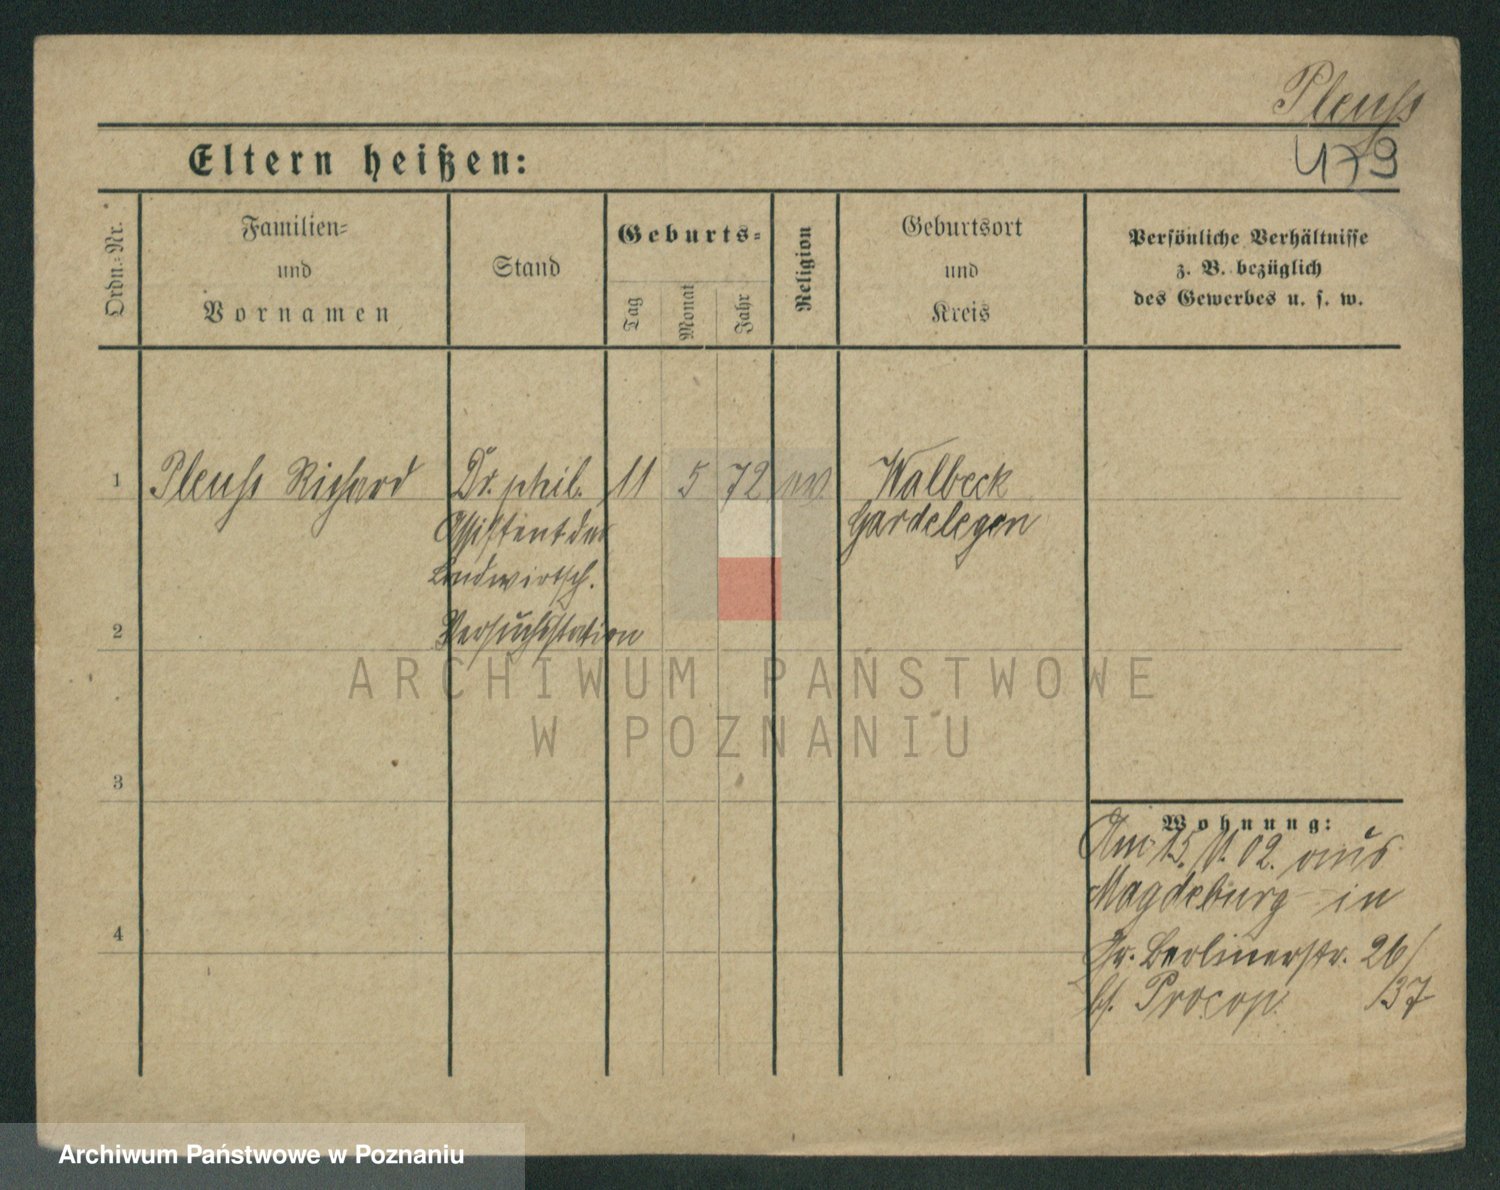 Pleuss
479
Eltern heißen:
Ordn.-Nr.
Familien-
und
Vornamen
Stand
Geburts-
Tag
Monat
Jahr
Religion
Geburtsort
und
Kreis
Persönliche Verhältnisse
z. B. bezüglich
des Gewerbes u. s. w.
1 Pleuss Richard Dr. phil. 11 5 72 ev Walbeck
Assistent der Gardelegen
Landwirtsch.
2 Versuchsstation
ARCHIWUM PAŃSTWOWE
W POZNANIU
3
Wohnung:
Am 15. 11. 02. aus
Magdeburg in
4
Gr. Berlinerstr. 26/
bei Procop. /37
Archiwum Państwowe w Poznaniu